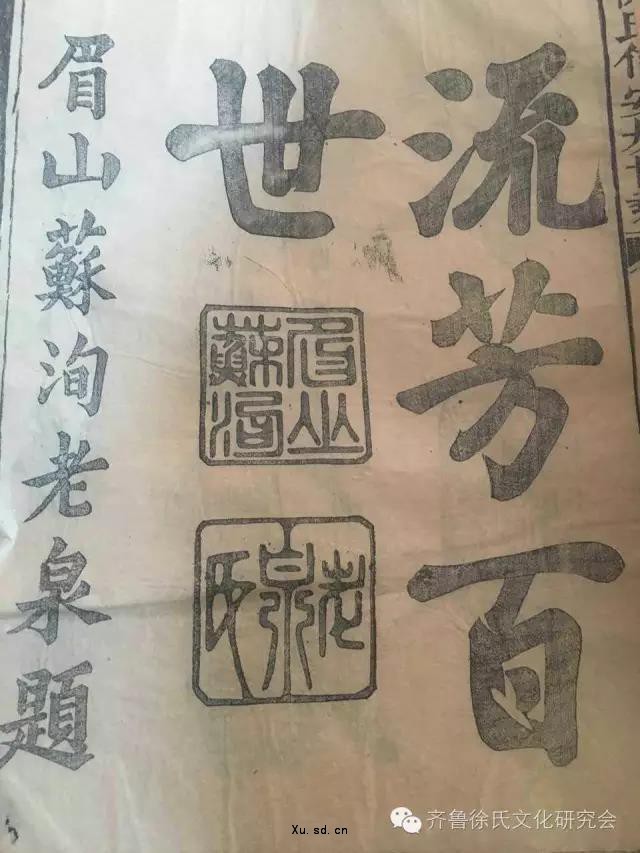 流芳百
世
眉山蘇洵
老泉氏
眉山蘇洵老泉題
齐鲁徐氏文化研究会
Xu.sd.cn